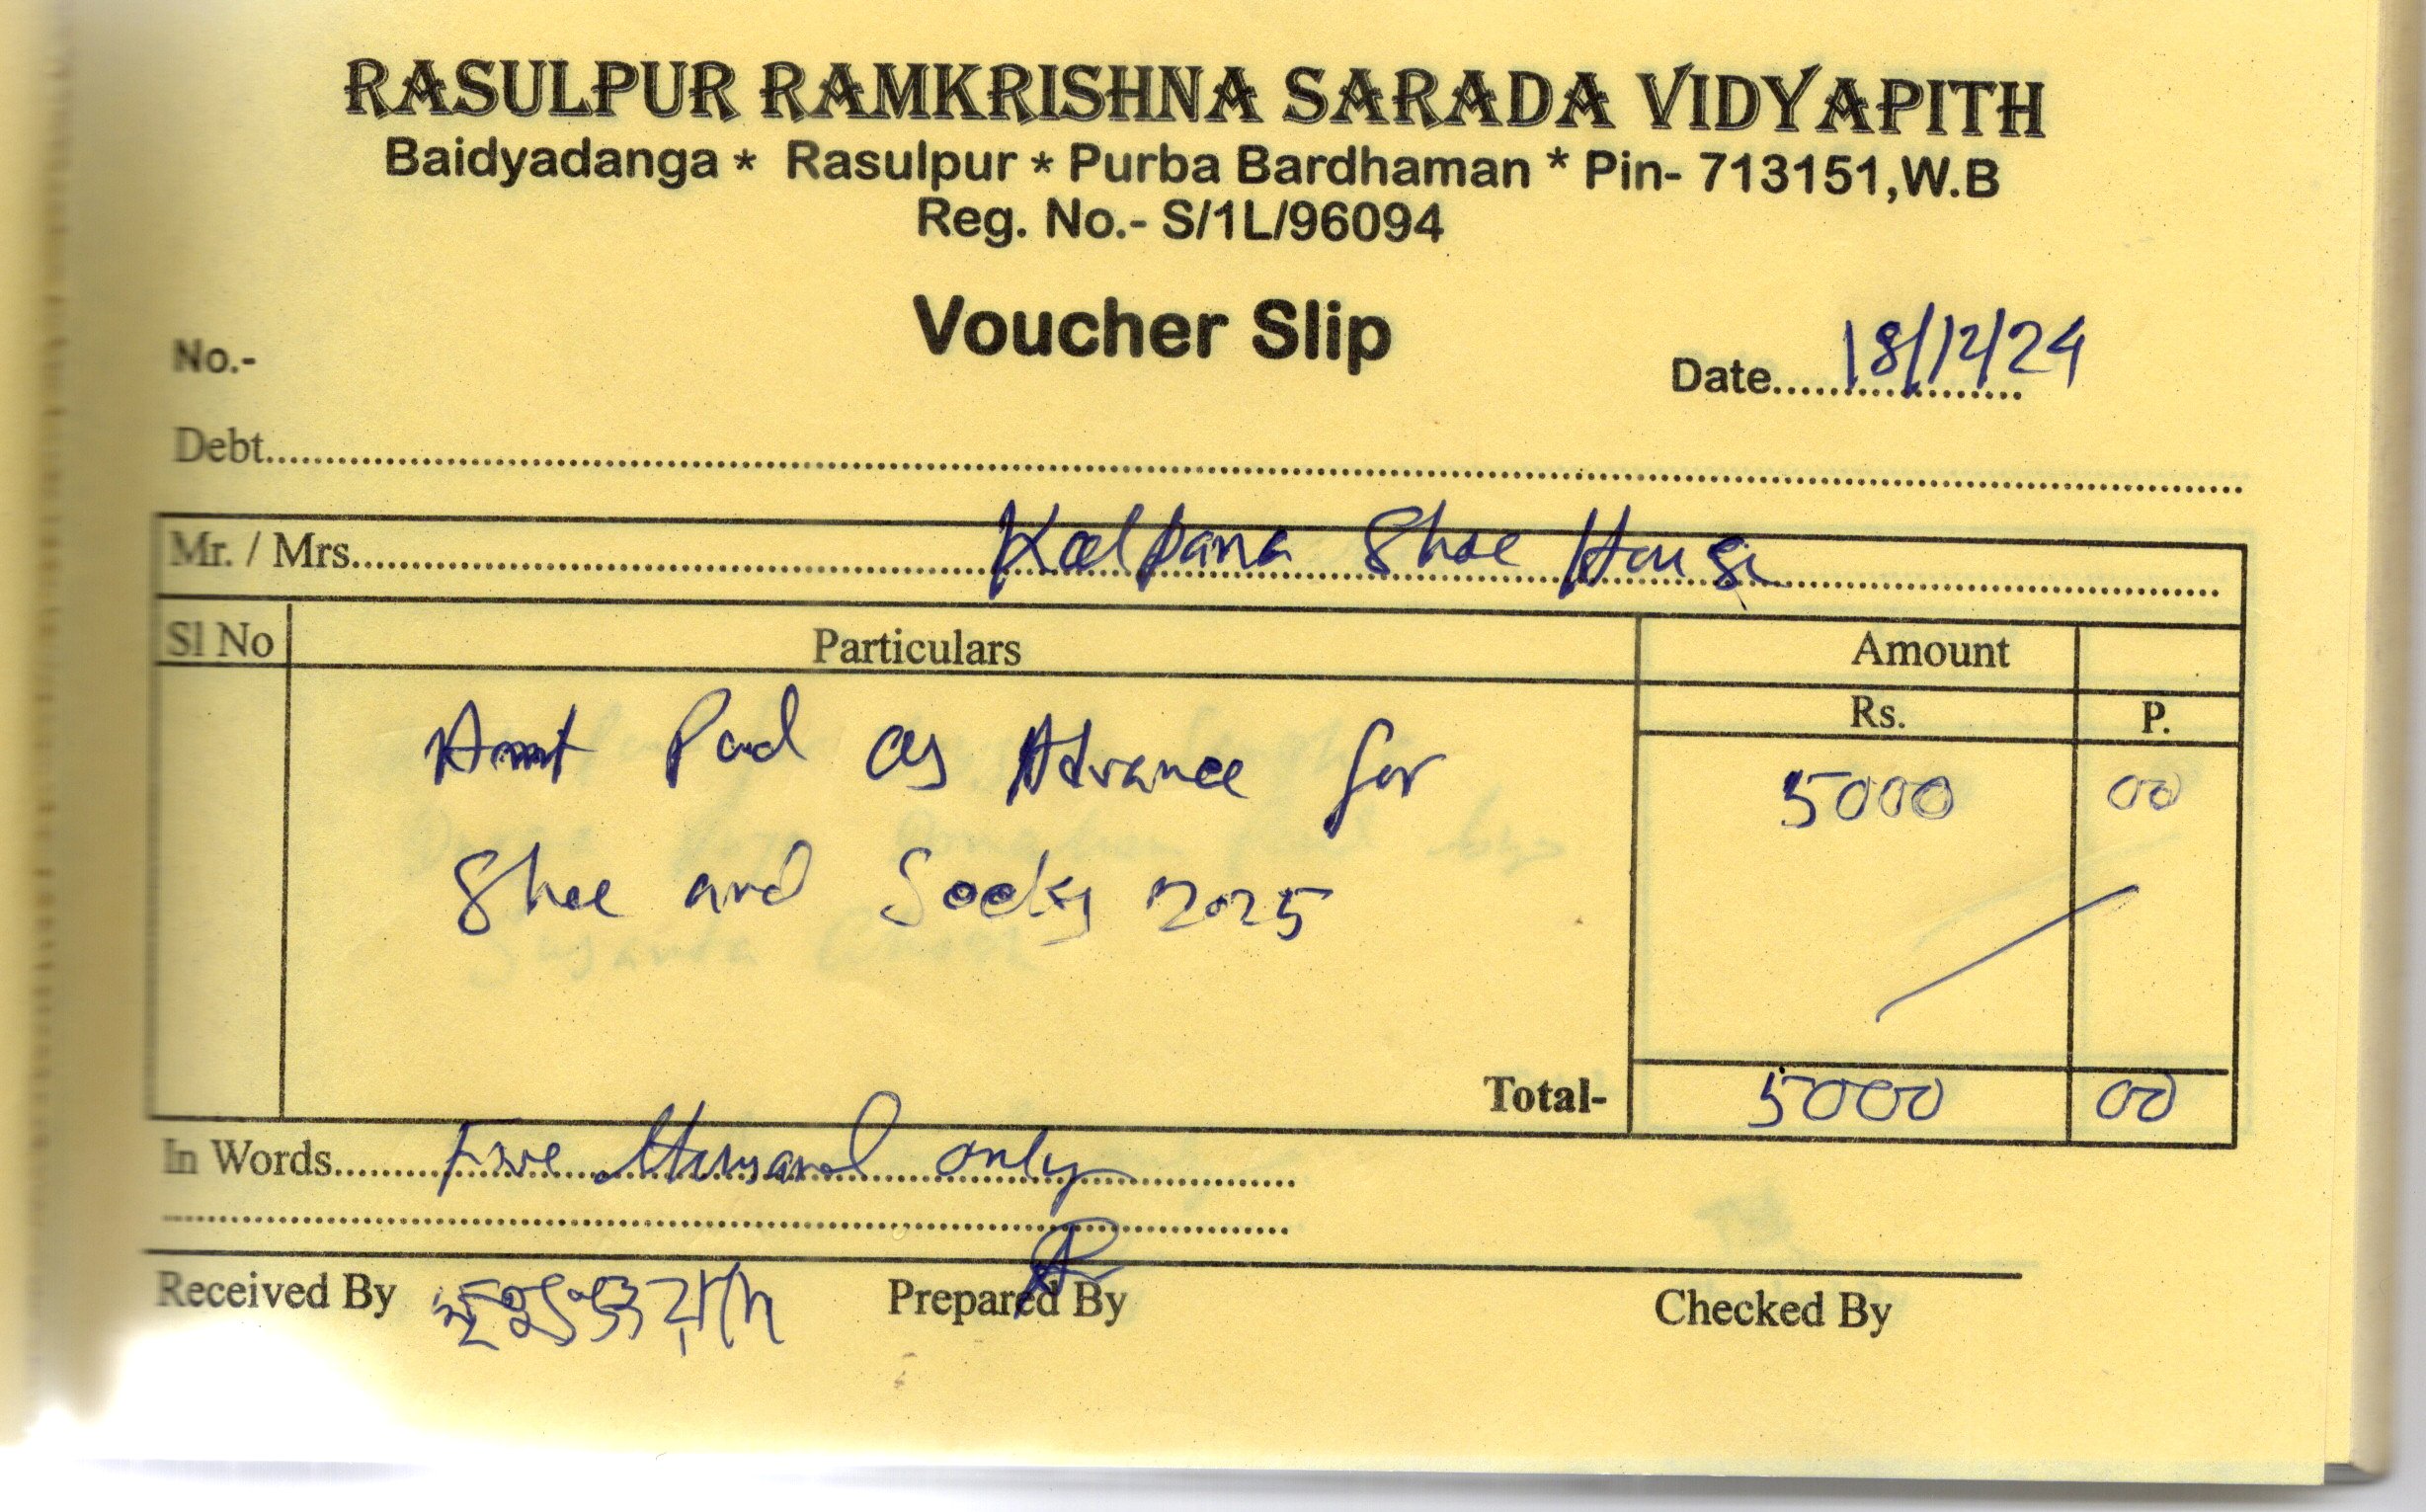 RASULPUR RAMKRISHNA SARADA VIDYAPITH
Baidyadanga * Rasulpur * Purba Bardhaman * Pin- 713151,W.B
Reg. No.- S/1L/96094
Voucher Slip
No.-
Date.................. 18/12/24
Debt..........................................................................
Mr. / Mrs.................... Kalpana Shoe House ....................
Sl No Particulars Amount
Rs. P.
Amt Paid as Advance for 5000 00
Shoe and Socks 2025
Total- 5000 00
In Words.......... Five thousand only ..........
Received By Prepared By Checked By